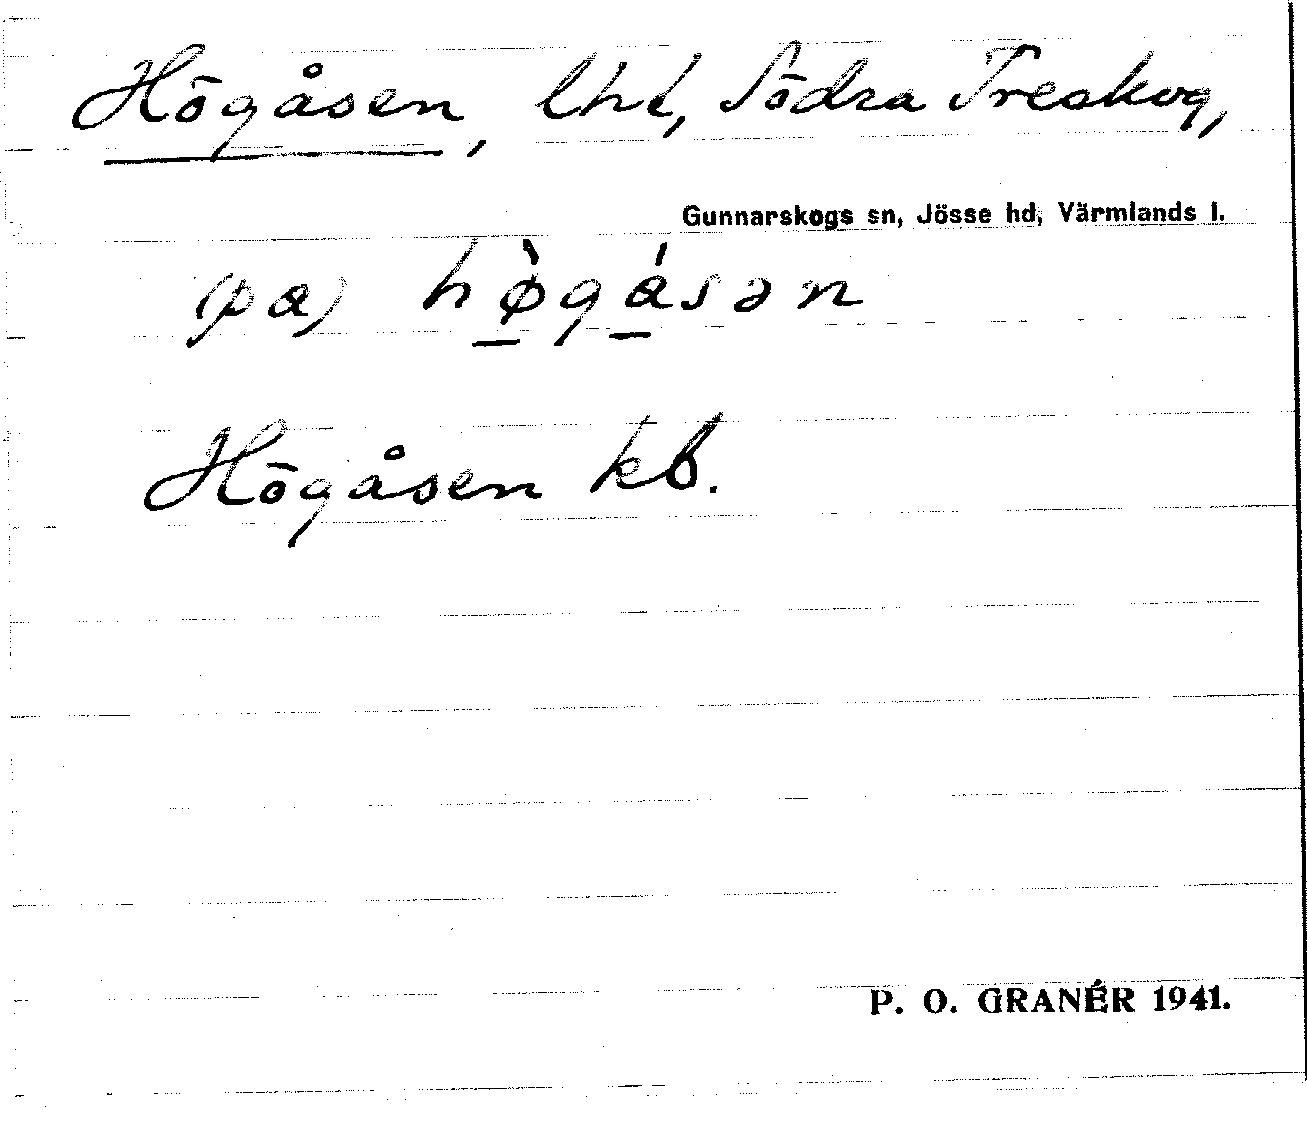 Högåsen, lht, Södra Treskog,
Gunnarskogs sn, Jösse hd, Värmlands l.
(pa) hø̠̀gá̠sən
Högåsen kb.
P. O. GRANÉR 1941.